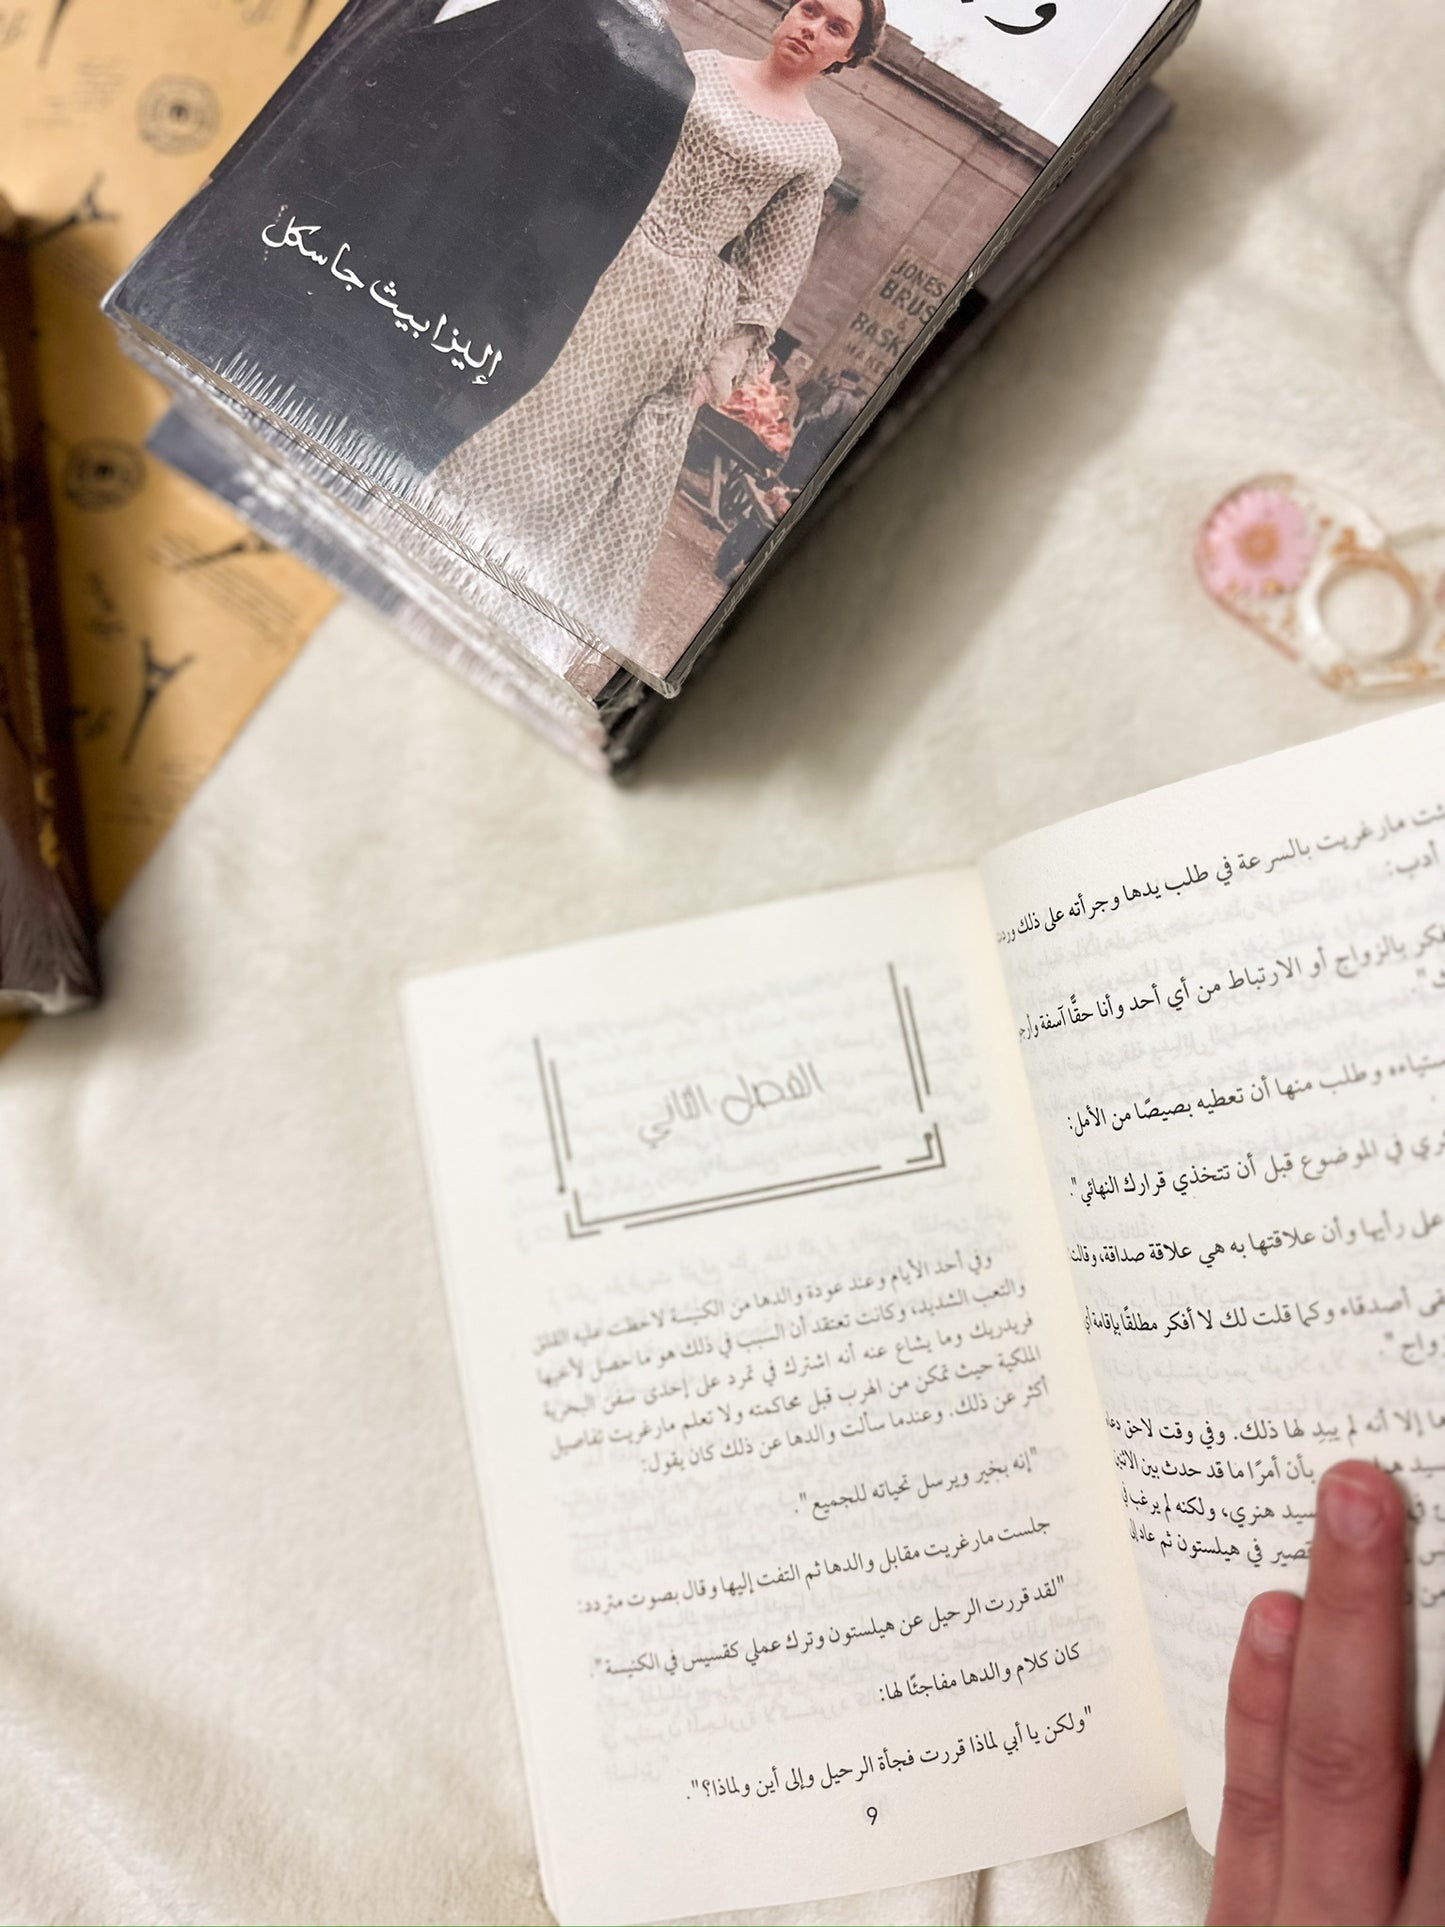 إليزابيث جاسكل
JONES
BRUS
&
BASK
مارغريت بالسرعة في طلب يدها وجرأته على ذلك
أدب:
بالزواج أو الارتباط من أي أحد وأنا حقًّا آسفة
وطلب منها أن تعطيه بصيصًا من الأمل:
في الموضوع قبل أن تتخذي قرارك النهائي".
رأيها وأن علاقتها به هي علاقة صداقة، وقالت:
أصدقاء وكما قلت لك لا أفكر مطلقًا بإقامة أي
إلا أنه لم يبدِ لها ذلك. وفي وقت لاحق
بأن أمرًا ما قد حدث بين
هنري، ولكنه لم يرغب في
في هيلستون ثم عاد إلى
الفصل الثاني
وفي أحد الأيام وعند عودة والدها من الكنيسة لاحظت عليه القلق
والتعب الشديد، وكانت تعتقد أن السبب في ذلك هو ما حصل لأخيها
فريدريك وما يشاع عنه أنه اشترك في تمرد على إحدى سفن البحرية
الملكية حيث تمكن من الهرب قبل محاكمته ولا تعلم مارغريت تفاصيل
أكثر عن ذلك. وعندما سألت والدها عن ذلك كان يقول:
"إنه بخير ويرسل تحياته للجميع".
جلست مارغريت مقابل والدها ثم التفت إليها وقال بصوت متردد:
"لقد قررت الرحيل عن هيلستون وترك عملي كقسيس في الكنيسة".
كان كلام والدها مفاجئًا لها:
"ولكن يا أبي لماذا قررت فجأة الرحيل وإلى أين ولماذا؟".
9